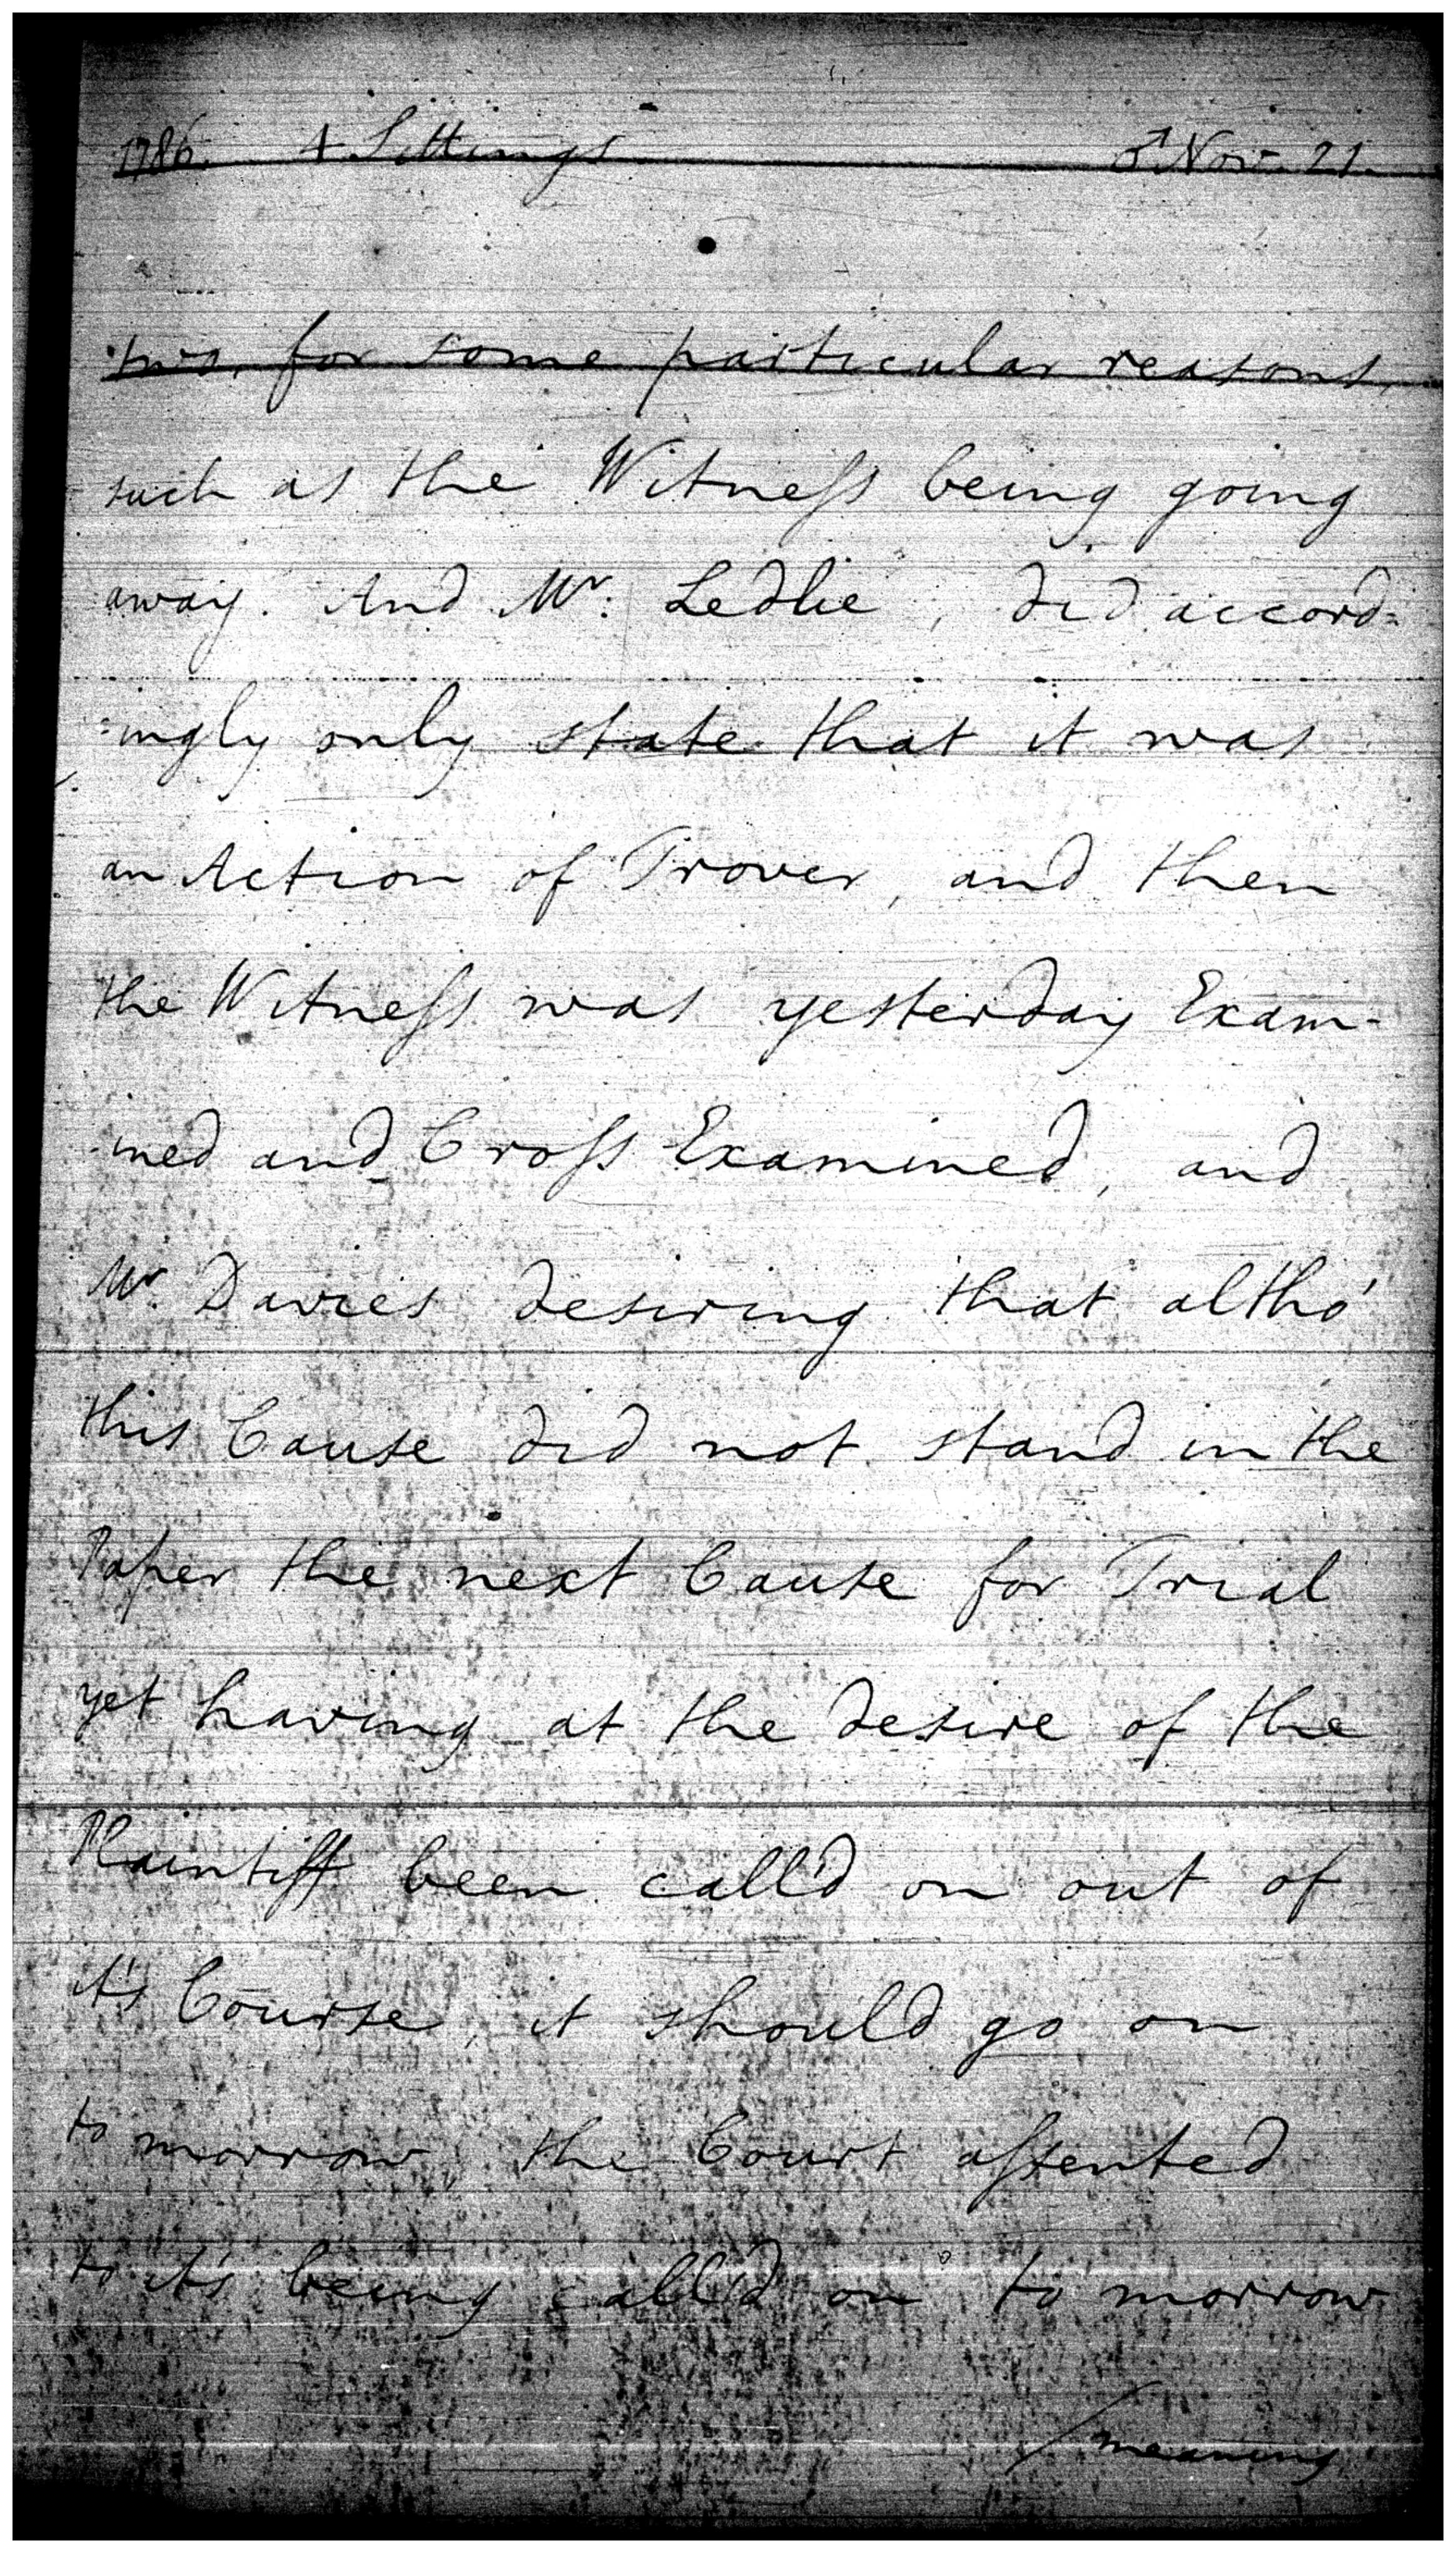 1786. 4 Sittings ♂ Nov. 21.
two, for some particular reasons,
such as the Witneſs being going
away. And Mr. Ledlie, did accord=
=ingly only state that it was
an Action of Trover, and then
the Witneſs was yesterday Exam-
-ined and Croſs Examined, and
Mr. Davies desiring that altho'
this Cause did not stand in the
Paper the next Cause for Trial
yet having at the desire of the
Plaintiff been call'd on out of
it's Course, it should go on
to morrow, the Court aſsented
to it's being call'd on to morrow
/meaning